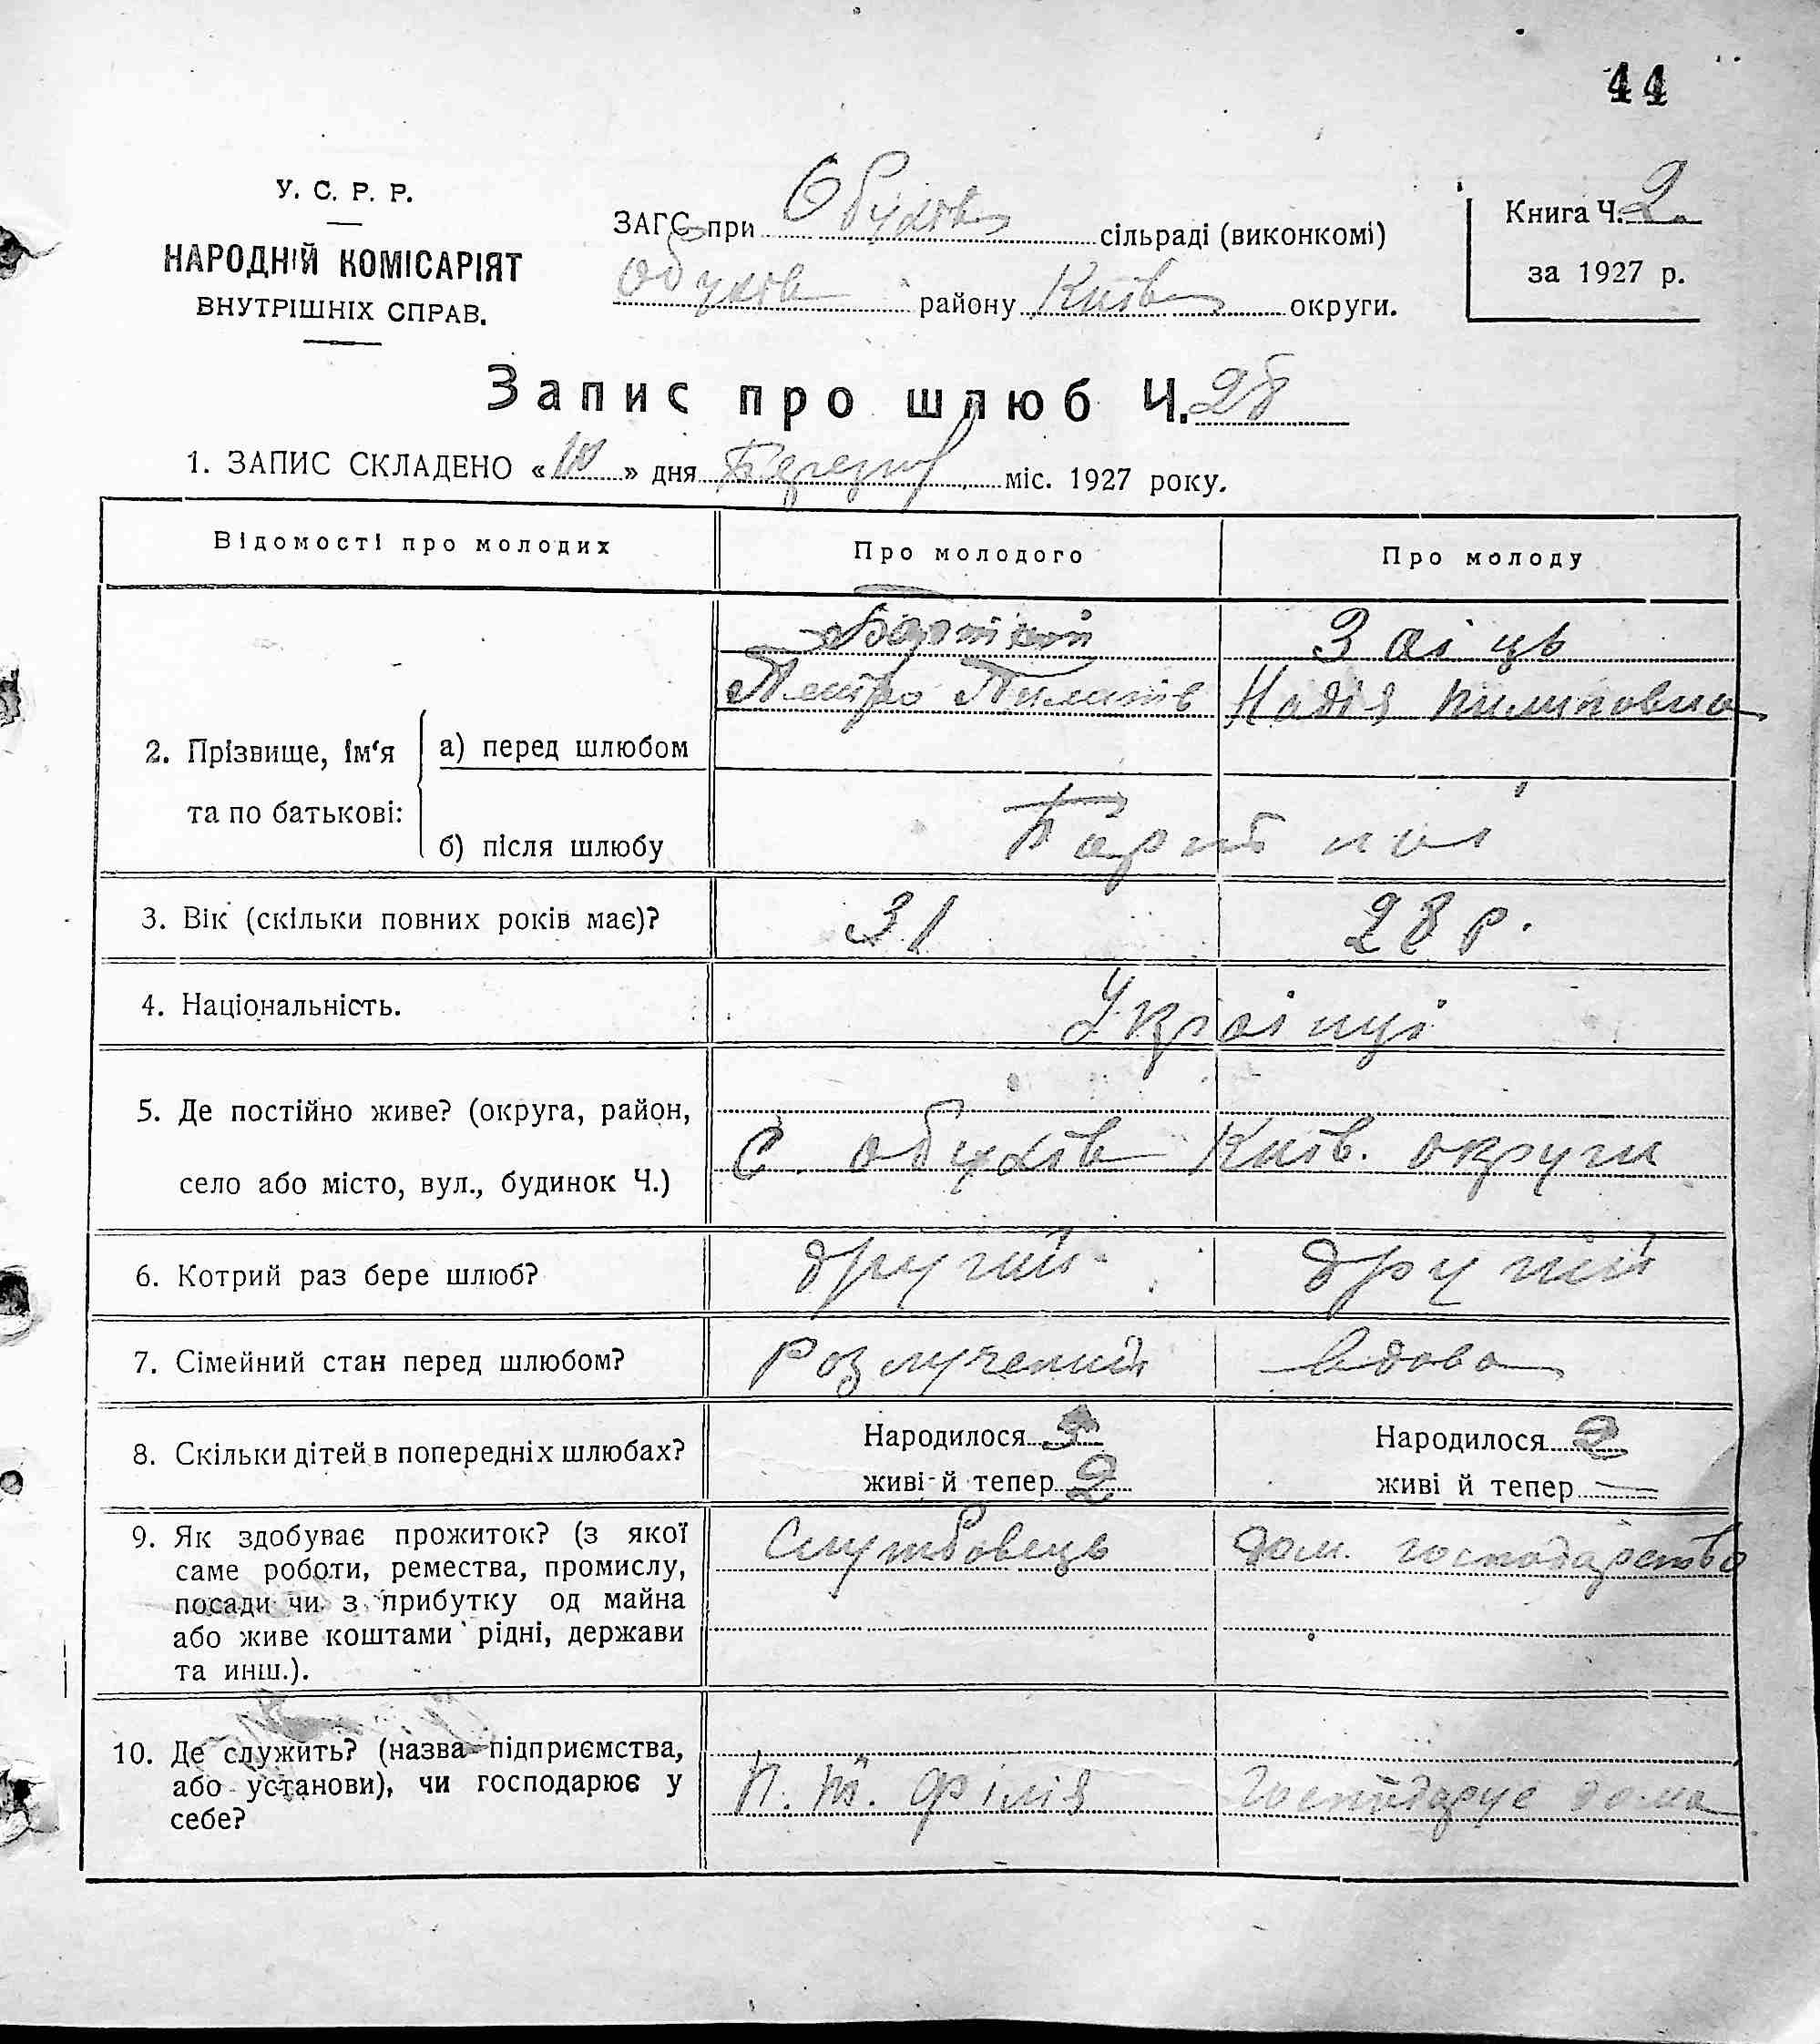 44
У. С. Р. Р.
НАРОДНІЙ КОМІСАРІЯТ
ВНУТРІШНІХ СПРАВ.
ЗАГС при Обухів сільраді (виконкомі)
Обухів району Київ округи.
Книга Ч. 2.
за 1927 р.
Запис про шлюб Ч. 28
1. ЗАПИС СКЛАДЕНО «10» дня Березня міс. 1927 року.
Відомості про молодих Про молодого Про молоду
Заіць
Петро Пилипів Надія Пилиповна
2. Прізвище, ім'я та по батькові:
а) перед шлюбом
б) після шлюбу
3. Вік (скільки повних років має)? 31 28 р.
4. Національність. Українці
5. Де постійно живе? (округа, район,
село або місто, вул., будинок Ч.)
С. Обухів Київ. округи
6. Котрий раз бере шлюб? другий другий
7. Сімейний стан перед шлюбом? Розлучений вдова
8. Скільки дітей в попередніх шлюбах?
Народилося Народилося 2
живі й тепер 2 живі й тепер —
9. Як здобуває прожиток? (з якої
саме роботи, ремества, промислу,
посади чи з прибутку од майна
або живе коштами рідні, держави
та инш.).
Службовець дом. господарство
10. Де служить? (назва підприємства,
або установи), чи господарює у
себе?
П. Т. Філія Господарує дома